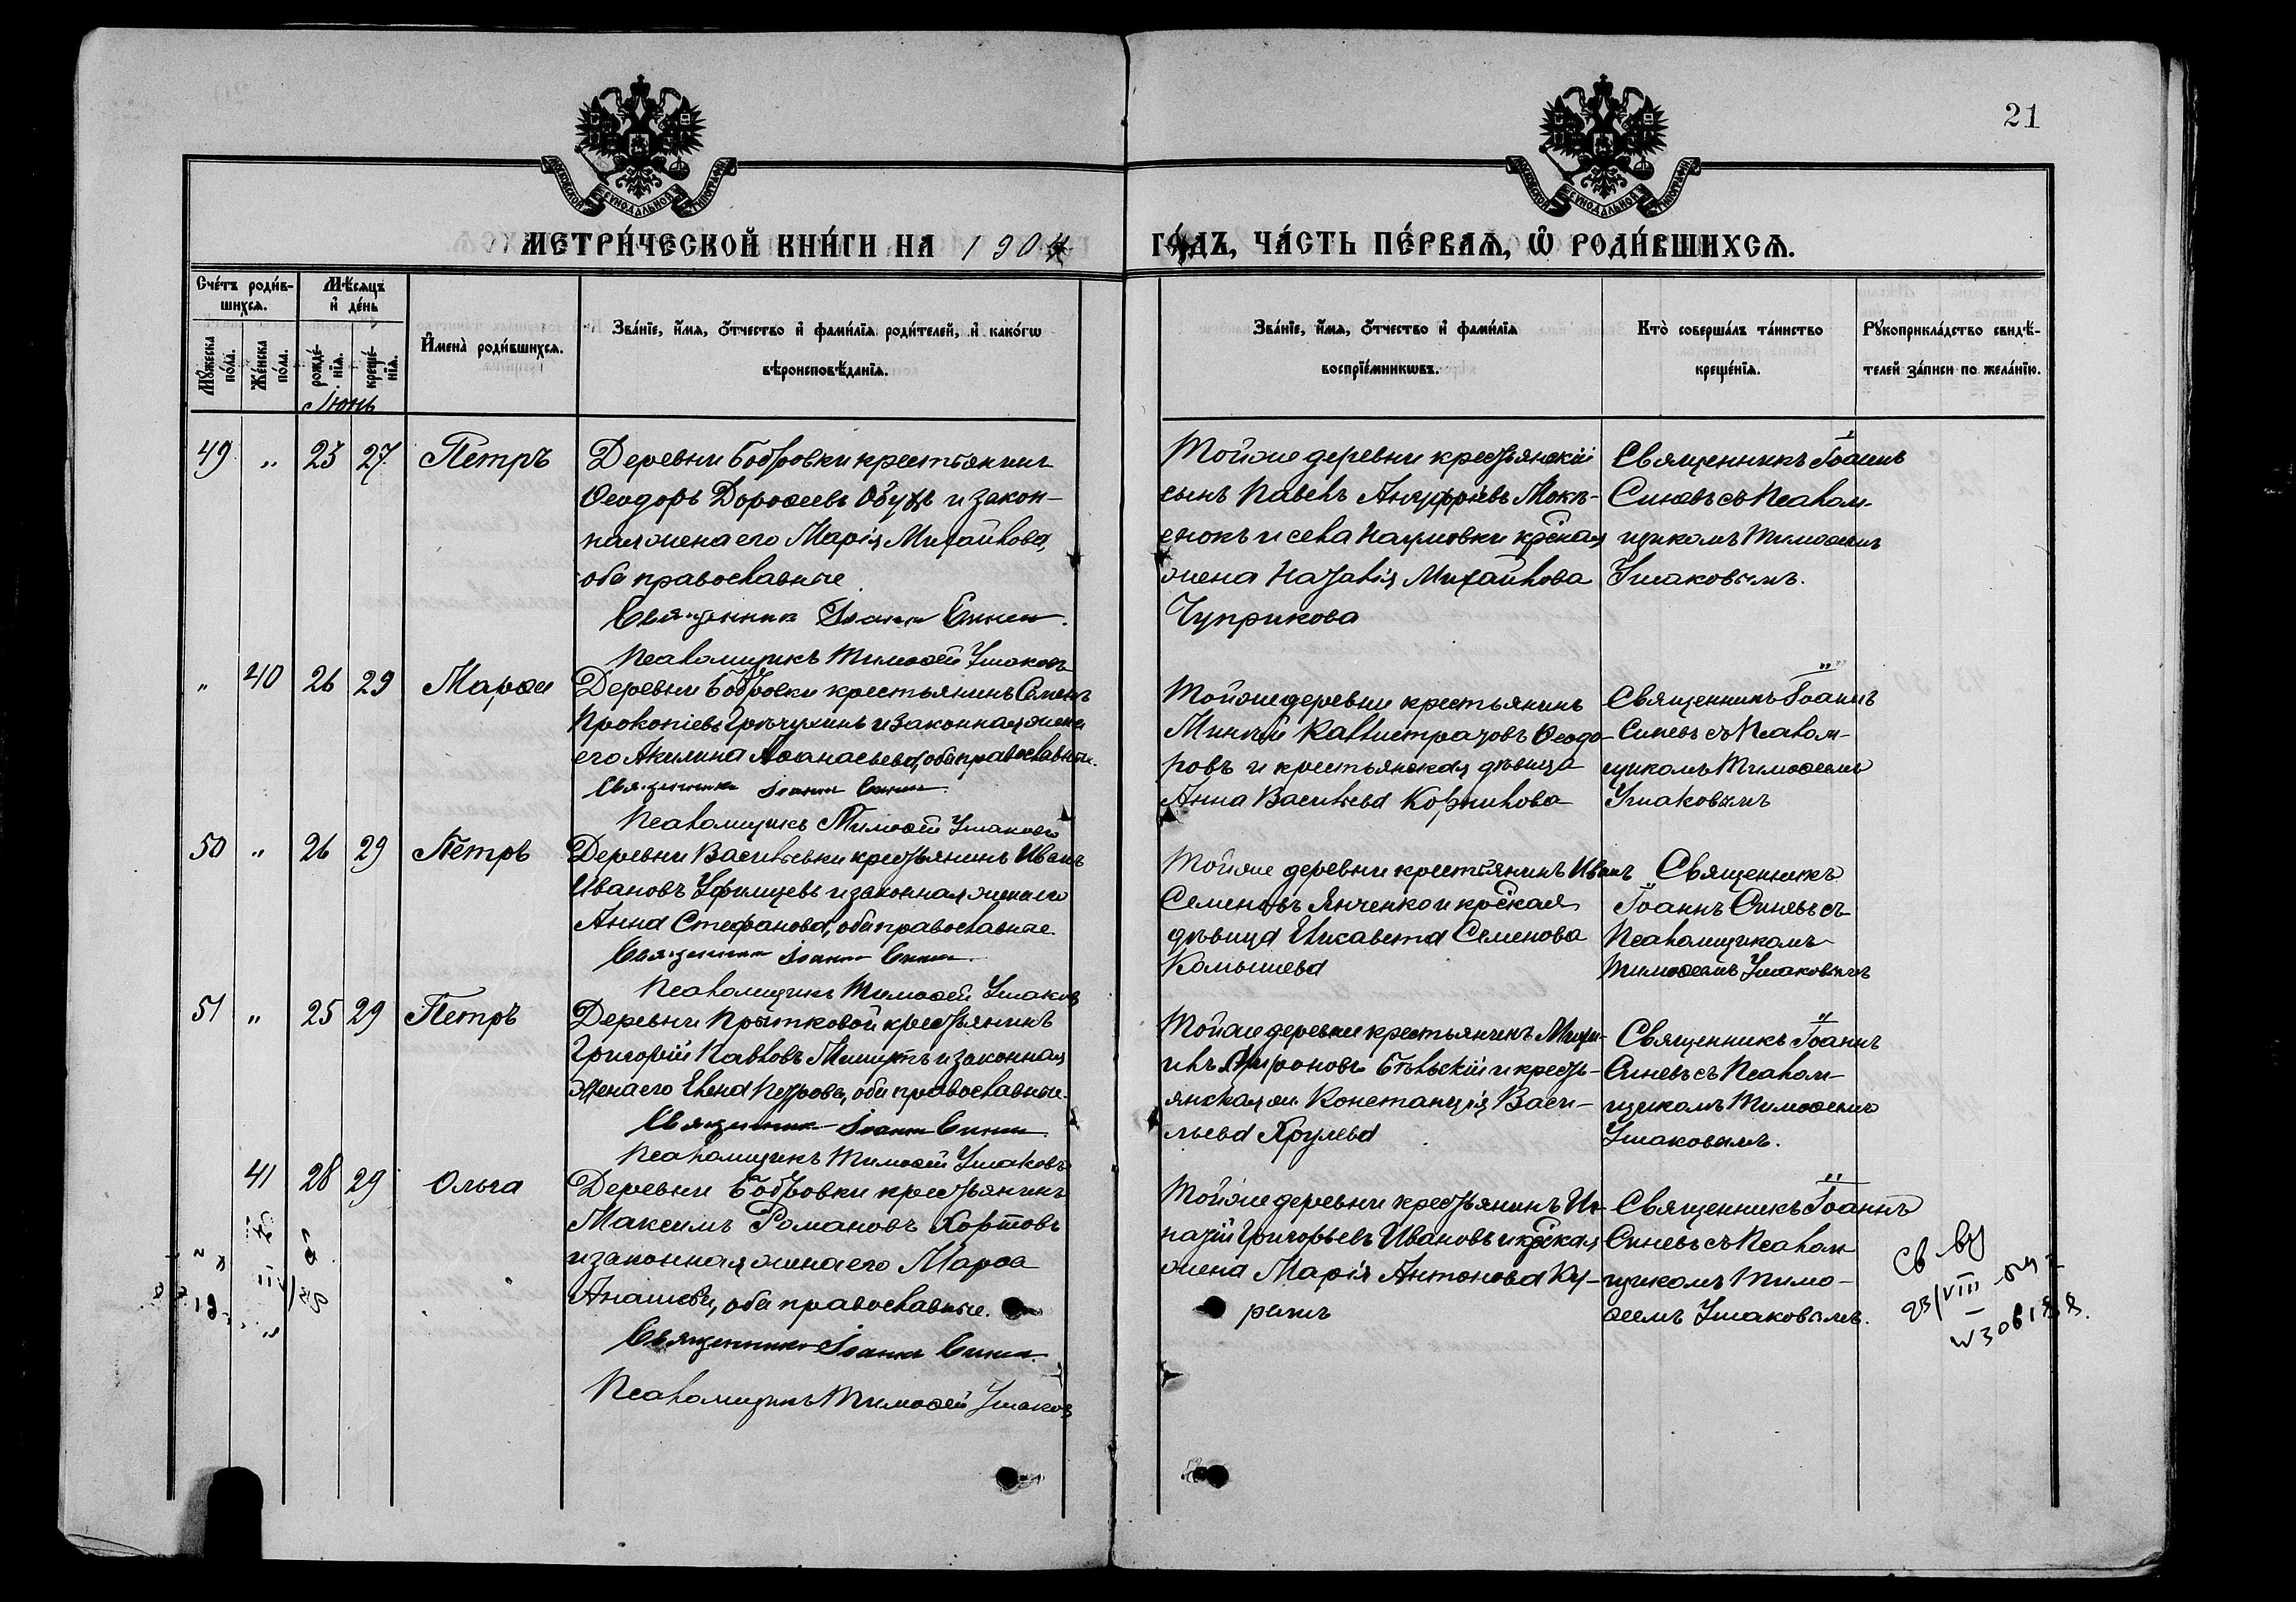 21
МЕТРИ́ЧЕСКОЙ КНИ́ГИ НА 1904
ГО́ДЪ, ЧА́СТЬ ПЕ́РВАЯ, Ѿ РОДИ́ВШИХСЯ.
Сче́тъ роди́в-
шихся.
Мѣ́сяцъ
и҆ де́нь
Му́жеска по́ла.
Же́нска по́ла.
рожде́-
нїя.
креще́-
нїя.
И҆мена̀ роди́вшихся.
Зва́нїе, и҆́мя, ѻ҆́тчество и҆ фами́лїя роди́телей, и҆ како́гѡ
вѣроисповѣ́данїя.
Зва́нїе, и҆́мя, ѻ҆́тчество и҆ фами́лїя
воспрїе́мникѡвъ.
Кто̀ соверша́лъ та́инство
креще́нїя.
Рꙋкоприкла́дство свидѣ́-
телей за́писи по жела́нїю.
Іюнь
49 " 23 27 Петръ
Деревни Бобровки крестьянинъ
Ѳеодоръ Дороѳеевъ и закон-
ная жена его Марія Михайлова,
оба православные
Священник Іоанн Синев.
Псаломщикъ Тимоѳей Ушаковъ
Тойже деревни крестьянскій
сынъ Павелъ Ануфріевъ
и села Наумовки кр́ская
жена Наталія Михайлова
Чуприкова
Священникъ Іоаннъ
Синевъ съ Псалом-
щикомъ Тимоѳеемъ
Ушаковымъ.
" 40 26 29 Марѳа
Деревни Бобровки крестьянинъ Семенъ
Прокопіевъ и законная жена
его Акилина Аѳанасьева, оба православные.
Священник Іоанн Синев.
Псаломщикъ Тимоѳей Ушаковъ
Тойже деревни крестьянинъ
Каллистратовъ Ѳеодо-
ровъ и крестьянская дѣвица
Анна Васильева Корнилова
Священникъ Іоаннъ
Синевъ съ Псалом-
щикомъ Тимоѳеемъ
Ушаковымъ
50 " 26 29 Петръ
Деревни Васильевки крестьянинъ Иванъ
Ивановъ Уфимцевъ и законная жена его
Анна Стефанова, оба православные
Священник Іоанн Синев.
Псаломщикъ Тимоѳей Ушаковъ
Тойже деревни крестьянинъ Иванъ
Семеновъ Янченко и кр́ская
дѣвица Елисавета Семенова
Комышева
Священникъ
Іоаннъ Синевъ съ
Псаломщикомъ
Тимоѳеемъ Ушаковымъ
51 " 25 29 Петръ
Деревни Прытковой крестьянинъ
Григорій Павловъ и законная
жена его Елена Петрова, оба православные.
Священник Іоанн Синев.
Псаломщикъ Тимоѳей Ушаковъ
Тойже деревни крестьянинъ Миха-
илъ Бѣльскій и кресть-
янская ж. Констанція Васи-
льева Хрулева
Священникъ Іоаннъ
Синевъ съ Псалом-
щикомъ Тимоѳеемъ
Ушаковымъ.
41 28 29 Ольга
Деревни Бобровки крестьянинъ
Максимъ Романовъ Хортовъ
и законная жена его Марѳа
оба православные.
Священник Іоанн Синев.
Псаломщикъ Тимоѳей Ушаковъ
Тойже деревни крестьянинъ Иг-
натій Григорьевъ Ивановъ и кр́ская
жена Марія Антонова
Священникъ Іоаннъ
Синевъ съ Псалом-
щикомъ Тимо-
ѳеемъ Ушаковымъ.